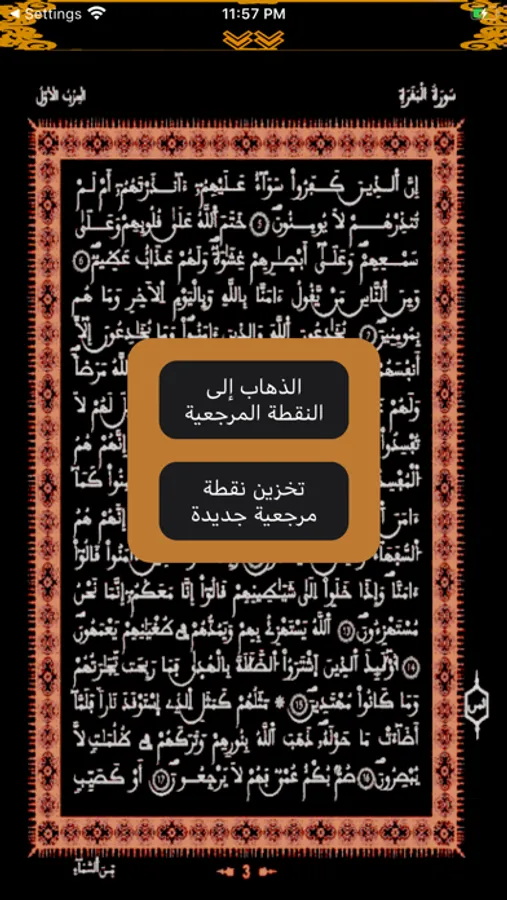 Settings
11:57 PM
سُورَةُ الْبَقَرَةِ
الحِزْبُ الأوّل
إِنَّ اَلذِينَ كَفَرُواْ سَوَآءٌ عَلَيْهِمُۥٓ ءَآنذَرْتَهُمُۥٓ أَمْ لَمْ
تُنذِرْهُمْ لَا يُومِنُونَ 5 خَتَمَ اَللَّهُ عَلَىٰ قُلُوبِهِمْ وَعَلَىٰ
سَمْعِهِمْ وَعَلَىٰٓ أَبْصٰرِهِمْ غِشَٰوَةٌ وَلَهُمْ عَذَابٌ عَظِيمٌ 6
وَمِنَ اَلنَّاسِ مَنْ يَّقُولُ ءَامَنَّا بِاللَّهِ وَبِالْيَوْمِ اِلَاخِرِ وَمَا هُم
بِمُومِنِينَ 7 يُخَٰدِعُونَ اَللَّهَ وَالذِينَ ءَامَنُواْ وَمَا يُخَٰدِعُونَ إِلَّآ
أَنفُسَهُمْ اللَّهُ مَرَضاً
وَلَهُمْ لَهُمْ لَا
تُفْسِدُواْ إِنَّهُمْ هُمُ
كَمَآ
ءَامَنَ إِنَّهُمْ هُمُ
اَلسُّفَهَآءُ قَالُوٓاْ
ءَامَنَّا وَإِذَا خَلَوِاْ اِلَىٰ شَيَٰطِينِهِمْ قَالُوٓاْ إِنَّا مَعَكُمُۥٓ إِنَّمَا نَحْنُ
مُسْتَهْزِءُونَ 13 اَللَّهُ يَسْتَهْزِئُ بِهِمْ وَيَمُدُّهُمْ فِي طُغْيَٰنِهِمْ يَعْمَهُونَ
14 أُوْلَٰٓئِكَ اَلذِينَ اَشْتَرَوُاْ اُلضَّلَٰلَةَ بِالْهُدَىٰ فَمَا رَبِحَت تِّجَٰرَتُهُمْ
وَمَا كَانُواْ مُهْتَدِينَ 15 * مَثَلُهُمْ كَمَثَلِ اِلذِي اِسْتَوْقَدَ نَاراً فَلَمَّآ
أَضَآءَتْ مَا حَوْلَهُۥ ذَهَبَ اَللَّهُ بِنُورِهِمْ وَتَرَكَهُمْ فِي ظُلُمَٰتٍ لَّا
يُبْصِرُونَ 16 صُمُّۢ بُكْمٌ عُمْيٌ فَهُمْ لَا يَرْجِعُونَ 17 أَوْ كَصَيِّبٍ
الذهاب إلى
النقطة المرجعية
تخزين نقطة
مرجعية جديدة
مِّنَ السَّمَآءِ
3